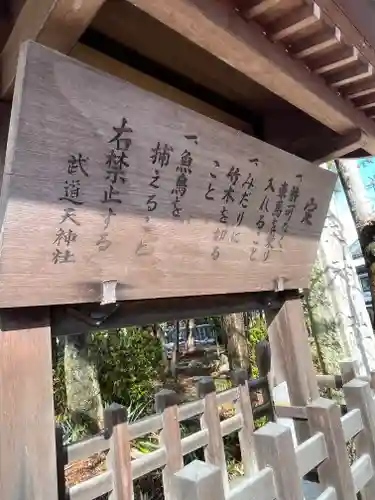 定
一、許可なく
車馬を乗り
入れること
一、みだりに
竹木を切る
こと
一、魚鳥を
捕えること
右禁止する
武道天神社